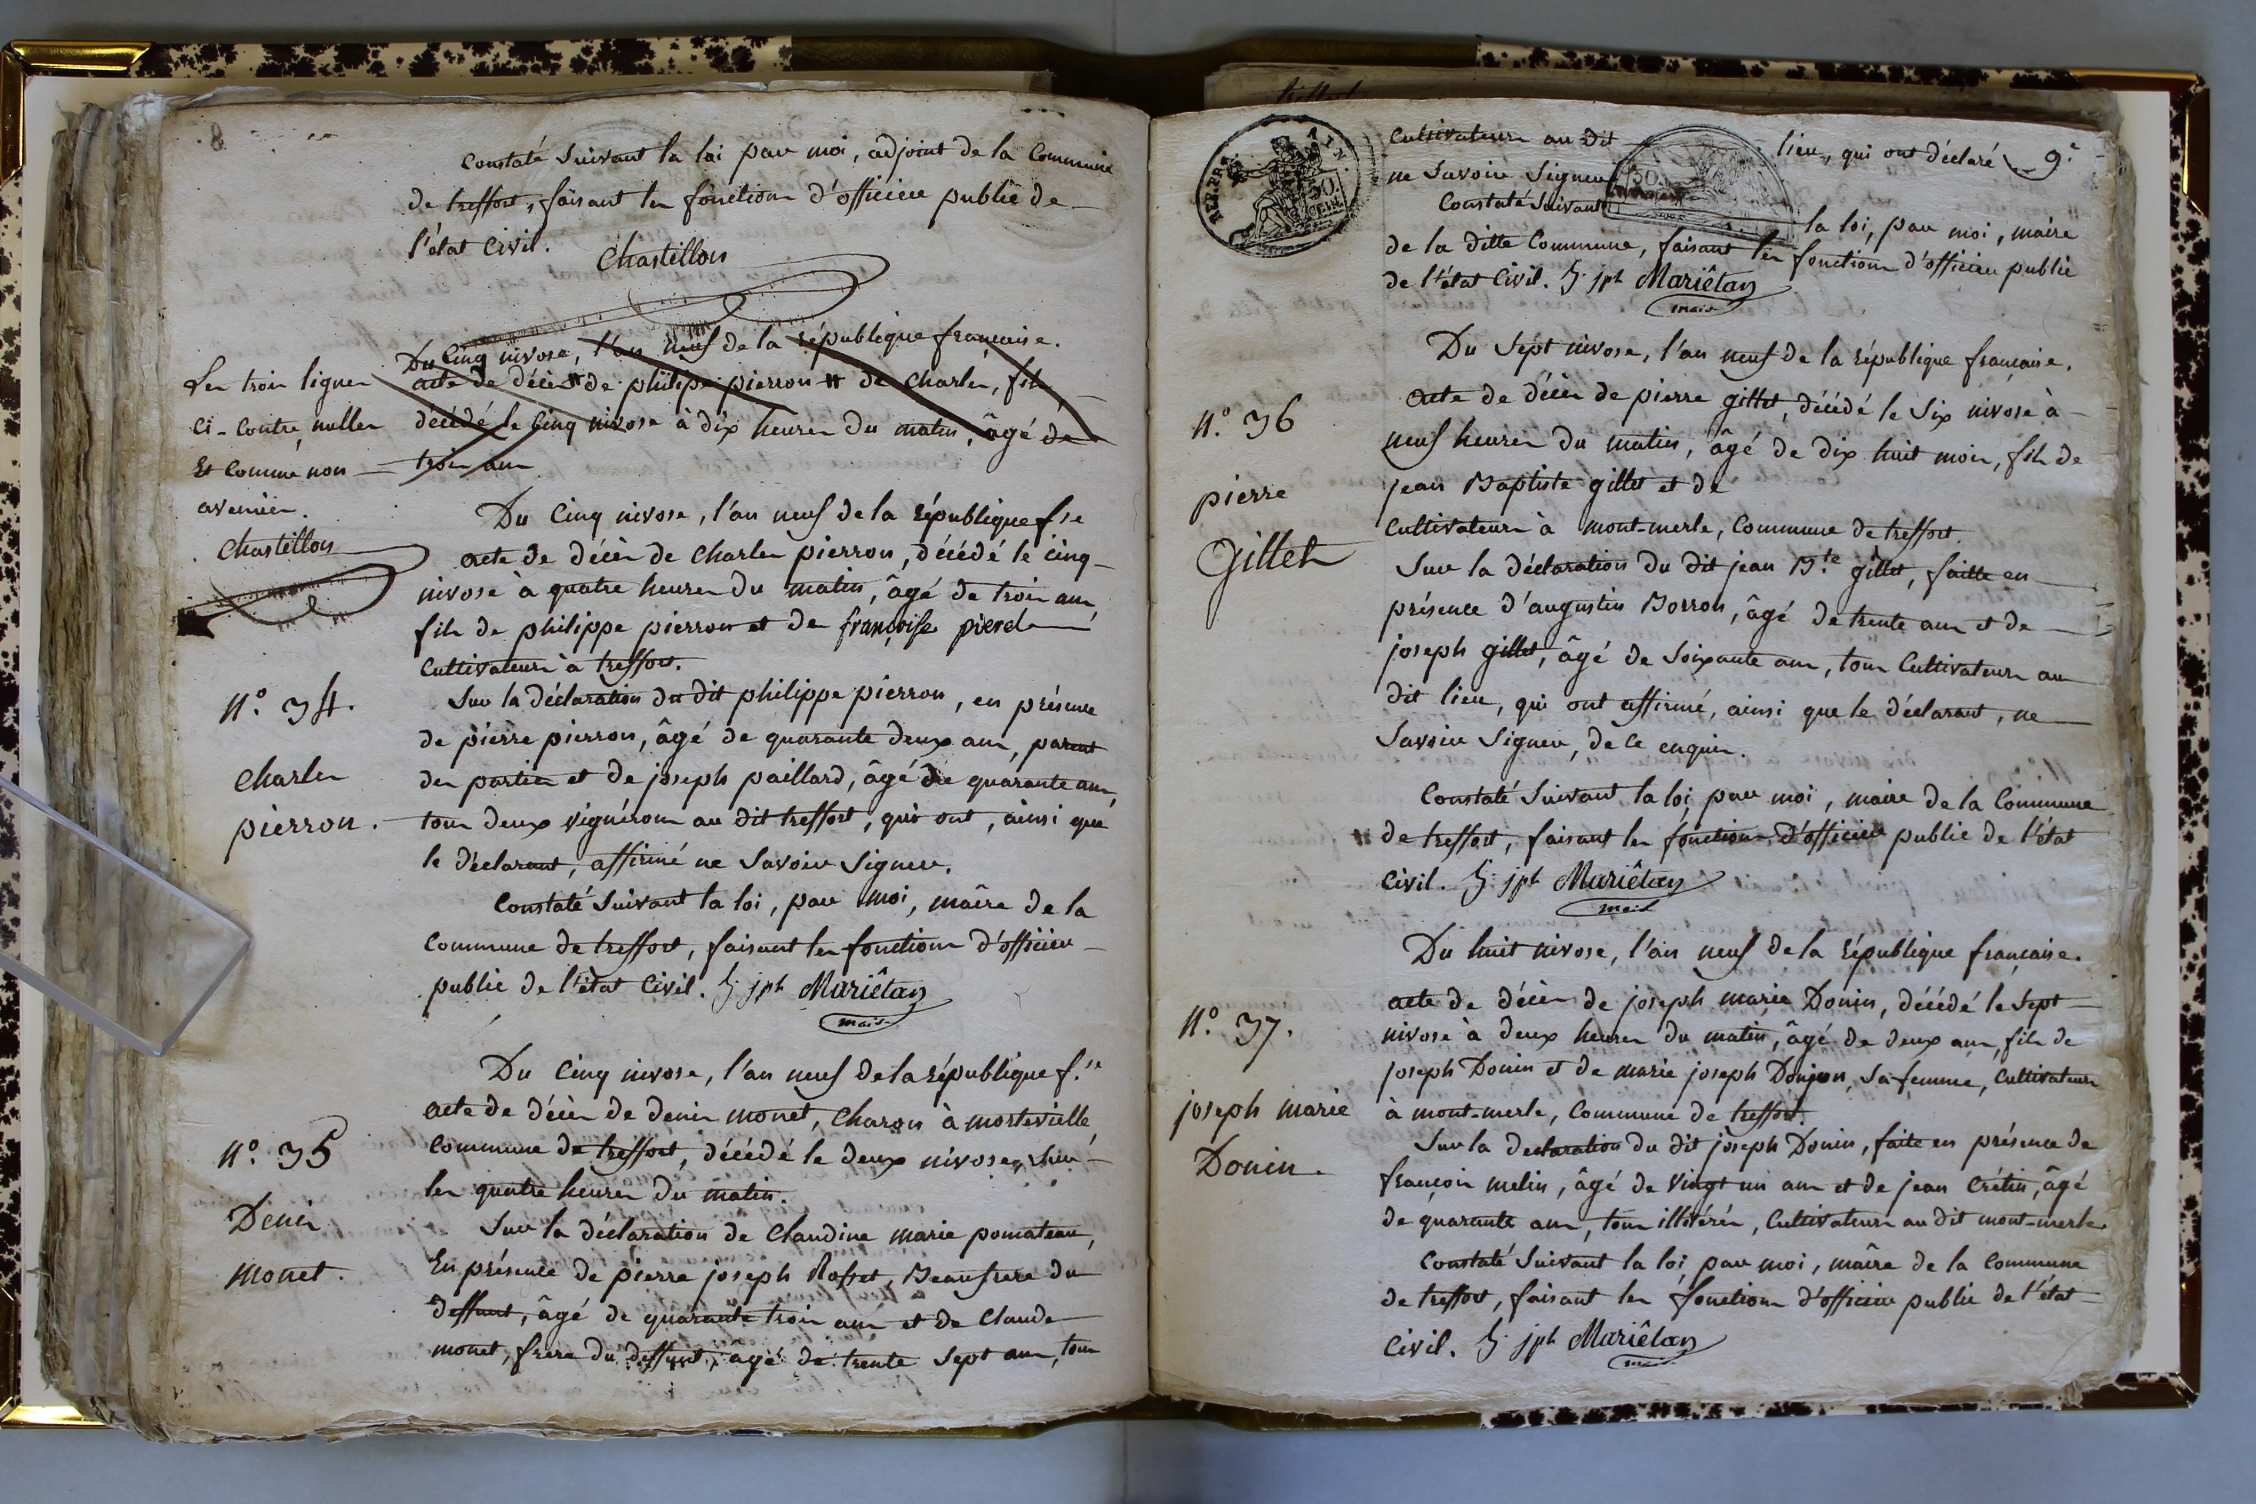 8
Constaté Suivant la loi par moi, adjoint de la Commune
de treffort, faisant les fonctions d'officier public de
l'état Civil.
Chastillon
Les trois lignes
ci-contre nulles
Et Comme non
avenües.
Chastillon
Du Cinq nivose, l'an neuf de la république française.
acte de décès de philippe pierron de Charles, fils
décédé le Cinq nivose à dix heures du matin, âgé de
trois ans
Du Cinq nivose, l'an neuf de la république fse
N.o 34.
Charles
pierron.
acte de décès de Charles pierron, décédé le cinq
nivose à quatre heures du matin, âgé de trois ans,
fils de philippe pierron et de françoise
Cultivateurs à treffort.
Sur la déclaration du dit philippe pierron, en présence
de pierre pierron, âgé de quarante deux ans, parent
des parties et de joseph paillard, âgé de quarante ans,
tous deux vignérons au dit treffort, qui ont, ainsi que
le déclarant, affirmé ne Savoir Signer.
Constaté Suivant la loi, par moi, maire de la
Commune de treffort, faisant les fonctions d'officier
public de l'état Civil. jph Mariêtan
maire
Du Cinq nivose, l'an neuf de la république f.se
N.o 35
Denis
monet.
acte de décès de denis monet, Charon à mortevielle,
Commune de treffort, décédé le deux nivose, Sur
les quatre heures du matin.
Sur la déclaration de Claudine marie pomateau,
En présence de pierre joseph Rosset, Beaufrere du
deffunt, âgé de quarante trois ans et de Claude
monet, frère du deffunt, âgé de trente Sept ans, tous
AIN
50.
CENT.
50.
9.e
Cultivateurs au dit lieu, qui ont déclaré
ne Savoir Signer
Constaté Suivant la loi, par moi, maire
de la ditte Commune, faisant les fonctions d'officier public
de l'état Civil. jph Mariêtan
maire
Du Sept nivose, l'an neuf de la république française.
N.o 36
pierre
Gillet
acte de décès de pierre gillet, décédé le Six nivose à
neuf heures du matin, âgé de dix huit mois, fils de
jean Baptiste gillet et de
Cultivateurs à mont-merle, Commune de treffort.
Sur la déclaration du dit jean B.te gillet, faitte en
présence d'augustin Borron, âgé de trente ans et de
joseph gillet, âgé de Soixante ans, tous Cultivateurs au
dit lieu, qui ont affirmé, ainsi que le déclarant, ne
Savoir Signer, de ce enquis.
Constaté Suivant la loi par moi, maire de la Commune
de treffort, faisant les fonctions d'officier public de l'état
Civil. jph Mariêtan
maire
Du huit nivose, l'an neuf de la république française.
N.o 37.
joseph marie
Donin.
acte de décès de joseph marie Donin, décédé le Sept
nivose à deux heures du matin, âgé de deux ans, fils de
joseph Donin et de marie joseph Donjon, Sa femme, Cultivateurs
à mont-merle, Commune de treffort.
Sur la declaration du dit joseph Donin, faite en présence de
françois melin, âgé de vingt un ans et de jean Crétin, âgé
de quarante ans, tous illitérés, Cultivateurs au dit mont-merle.
Constaté Suivant la loi par moi, maire de la Commune
de treffort, faisant les fonctions d'officier public de l'état
Civil. jph Mariêtan
maire